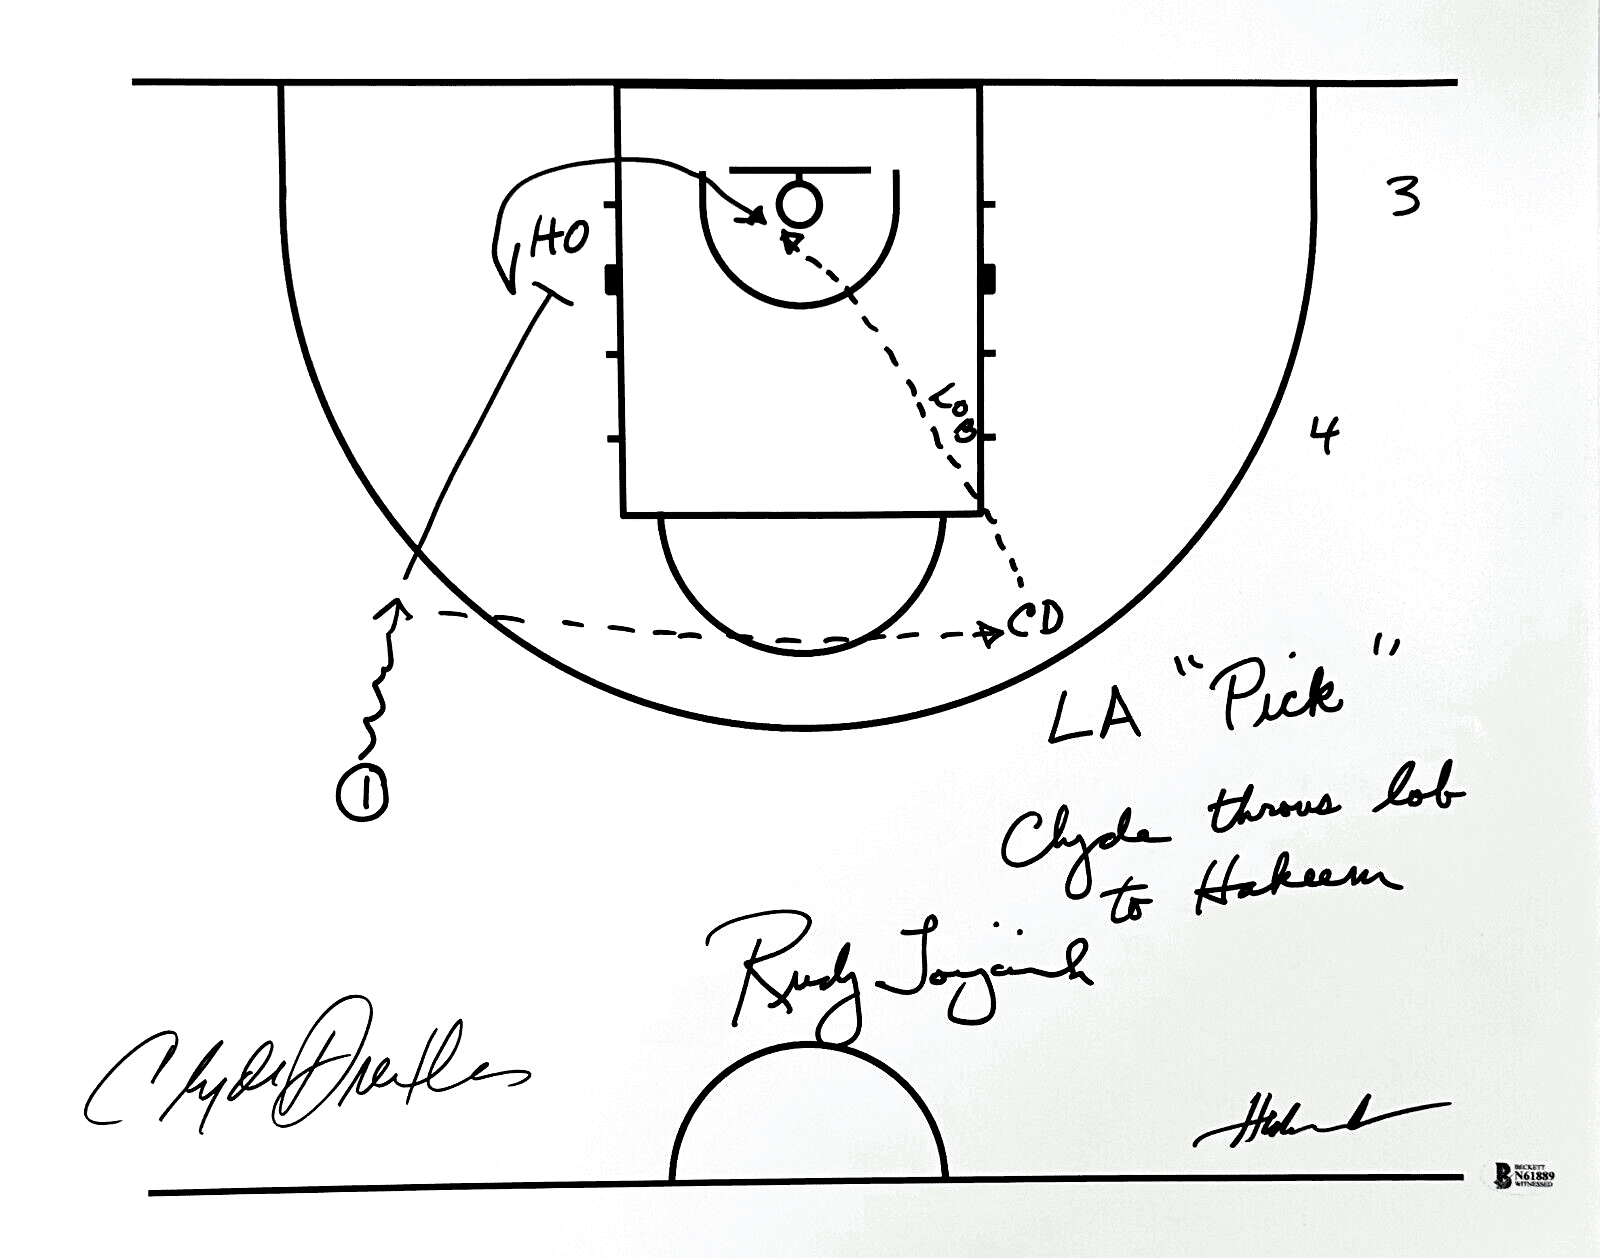 3
HO
LOB
4
CD
LA "Pick"
1
Clyde throws lob
to Hakeem
Rudy Tomjanovich
Clyde Drexler
BECKETT
N61889
WITNESSED